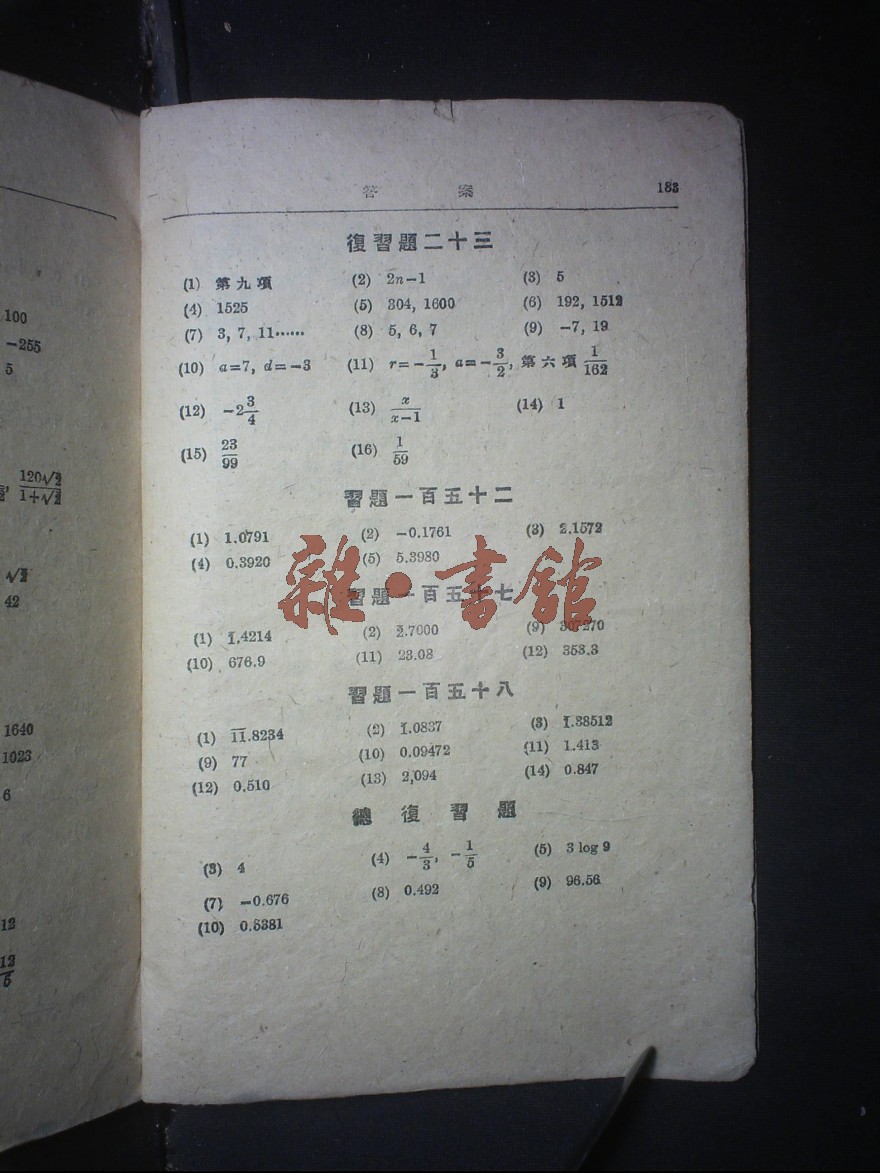 100
-255
5
120√2/1+√2
√2
42
1640
1023
6
12
12/5
答 案 183
復習題二十三
(1) 第九項 (2) 2n-1 (3) 5
(4) 1525 (5) 304, 1600 (6) 192, 1512
(7) 3, 7, 11…… (8) 5, 6, 7 (9) -7, 19
(10) a=7, d=-3 (11) r=-1/3, a=-3/2, 第六項 1/162
(12) -2 3/4 (13) x/x-1 (14) 1
(15) 23/99 (16) 1/59
習題一百五十二
(1) 1.0791 (2) -0.1761 (3) 2.1572
(4) 0.3920 (5) 5.3980
雜·書館
習題一百五十七
(1) 1̄.4214 (2) 2̄.7000 (9)
(10) 676.9 (11) 23.08 (12) 353.3
習題一百五十八
(1) 1̄1̄.8234 (2) 1̄.0837 (3) 1̄.38512
(9) 77 (10) 0.09472 (11) 1.413
(12) 0.510 (13) 2,094 (14) 0.847
總復習題
(3) 4 (4) -4/3, -1/5 (5) 3 log 9
(7) -0.676 (8) 0.492 (9) 96.56
(10) 0.5381